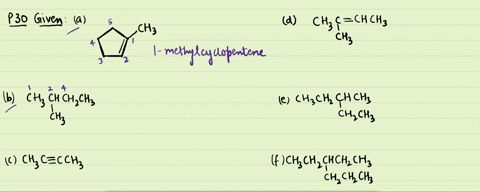 P30 Given: (a)
5
4
1
3
2
CH₃
1-methylcyclopentene
(b) CH₃CHCH₂CH₃
1 2 4
CH₃
(c) CH₃C≡CCH₃
(d) CH₃C=CHCH₃
CH₃
(e) CH₃CH₂CHCH₃
CH₂CH₃
(f) CH₃CH₂CHCH₂CH₃
CH₂CH₂CH₃